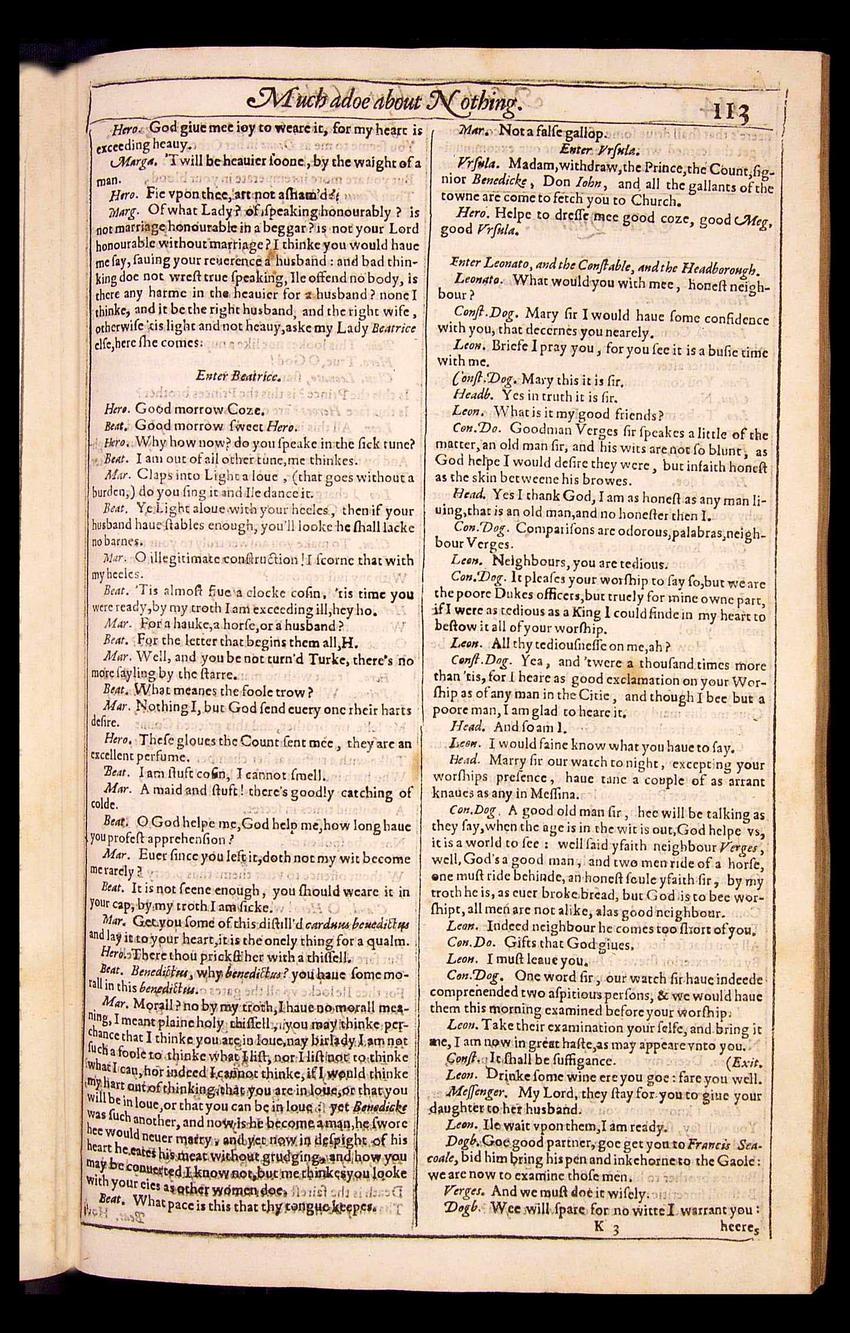 Much adoe about Nothing.
113
Hero. God giue mee ioy to weare it, for my heart is
exceeding heauy.
Marga. 'Twill be heauier soone, by the waight of a
man.
Hero. Fie vpon thee, art not asham'd?
Marg. Of what Lady? of speaking honourably? is
not marriage honourable in a beggar? is not your Lord
honourable without marriage? I thinke you would haue
me say, sauing your reuerence a husband: and bad thin-
king doe not wrest true speaking, Ile offend no body, is
there any harme in the heauier for a husband? none I
thinke, and it be the right husband, and the right wife,
otherwise 'tis light and not heauy, aske my Lady Beatrice
else, here she comes:
Enter Beatrice.
Hero. Good morrow Coze.
Beat. Good morrow sweet Hero.
Hero. Why how now? do you speake in the sick tune?
Beat. I am out of all other tune, me thinkes.
Mar. Claps into Light a loue, (that goes without a
burden,) do you sing it and Ile dance it.
Beat. Ye Light aloue with your heeles, then if your
husband haue stables enough, you'll looke he shall lacke
no barnes.
Mar. O illegitimate construction! I scorne that with
my heeles.
Beat. 'Tis almost fiue a clocke cosin, 'tis time you
were ready, by my troth I am exceeding ill, hey ho.
Mar. For a hauke, a horse, or a husband?
Beat. For the letter that begins them all, H.
Mar. Well, and you be not turn'd Turke, there's no
more sayling by the starre.
Beat. What meanes the foole trow?
Mar. Nothing I, but God send euery one their harts
desire.
Hero. These gloues the Count sent mee, they are an
excellent perfume.
Beat. I am stuft cosin, I cannot smell.
Mar. A maid and stuft! there's goodly catching of
colde.
Beat. O God helpe me, God help me, how long haue
you profest apprehension?
Mar. Euer since you left it, doth not my wit become
me rarely?
Beat. It is not seene enough, you should weare it in
your cap, by my troth I am sicke.
Mar. Get you some of this distill'd carduus benedictus
and lay it to your heart, it is the onely thing for a qualm.
Hero. There thou prickst her with a thissell.
Beat. Benedictus, why benedictus? you haue some mo-
rall in this benedictus.
Mar. Morall? no by my troth, I haue no morall mea-
ning, I meant plaine holy thissell, you may thinke per-
chance that I thinke you are in loue, nay birlady I am not
such a foole to thinke what I list, nor I list not to thinke
what I can, nor indeed I cannot thinke, if I would thinke
my hart out of thinking, that you are in loue, or that you
will be in loue, or that you can be in loue: yet Benedicke
was such another, and now is he become a man, he swore
hee would neuer marry, and yet now in despight of his
heart he eates his meat without grudging, and how you
may be conuerted I know not, but me thinkes you looke
with your eies as other women doe.
Beat. What pace is this that thy tongue keepes.
Mar. Not a false gallop.
Enter Vrsula.
Vrsula. Madam, withdraw, the Prince, the Count, sig-
nior Benedicke, Don Iohn, and all the gallants of the
towne are come to fetch you to Church.
Hero. Helpe to dresse mee good coze, good Meg,
good Vrsula.
Enter Leonato, and the Constable, and the Headborough.
Leonato. What would you with mee, honest neigh-
bour?
Const. Dog. Mary sir I would haue some confidence
with you, that decernes you nearely.
Leon. Briefe I pray you, for you see it is a busie time
with me.
Const. Dog. Mary this it is sir.
Headb. Yes in truth it is sir.
Leon. What is it my good friends?
Con. Do. Goodman Verges sir speakes a little of the
matter, an old man sir, and his wits are not so blunt, as
God helpe I would desire they were, but infaith honest
as the skin betweene his browes.
Head. Yes I thank God, I am as honest as any man li-
uing, that is an old man, and no honester then I.
Con. Dog. Comparisons are odorous, palabras, neigh-
bour Verges.
Leon. Neighbours, you are tedious.
Con. Dog. It pleases your worship to say so, but we are
the poore Dukes officers, but truely for mine owne part,
if I were as tedious as a King I could finde in my heart to
bestow it all of your worship.
Leon. All thy tediousnesse on me, ah?
Const. Dog. Yea, and 'twere a thousand times more
than 'tis, for I heare as good exclamation on your Wor-
ship as of any man in the Citie, and though I bee but a
poore man, I am glad to heare it.
Head. And so am I.
Leon. I would faine know what you haue to say.
Head. Marry sir our watch to night, excepting your
worships presence, haue tane a couple of as arrant
knaues as any in Messina.
Con. Dog. A good old man sir, hee will be talking as
they say, when the age is in the wit is out, God helpe vs,
it is a world to see: well said yfaith neighbour Verges,
well, God's a good man, and two men ride of a horse,
one must ride behinde, an honest soule yfaith sir, by my
troth he is, as euer broke bread, but God is to bee wor-
shipt, all men are not alike, alas good neighbour.
Leon. Indeed neighbour he comes too short of you.
Con. Do. Gifts that God giues.
Leon. I must leaue you.
Con. Dog. One word sir, our watch sir haue indeede
comprehended two aspitious persons, & we would haue
them this morning examined before your worship.
Leon. Take their examination your selfe, and bring it
me, I am now in great haste, as may appeare vnto you.
Const. It shall be suffigance. (Exit.
Leon. Drinke some wine ere you goe: fare you well.
Messenger. My Lord, they stay for you to giue your
daughter to her husband.
Leon. Ile wait vpon them, I am ready.
Dogb. Goe good partner, goe get you to Francis Sea-
coale, bid him bring his pen and inkehorne to the Gaole:
we are now to examine those men.
Verges. And we must doe it wisely.
Dogb. Wee will spare for no witte I warrant you:
K 3 heeres